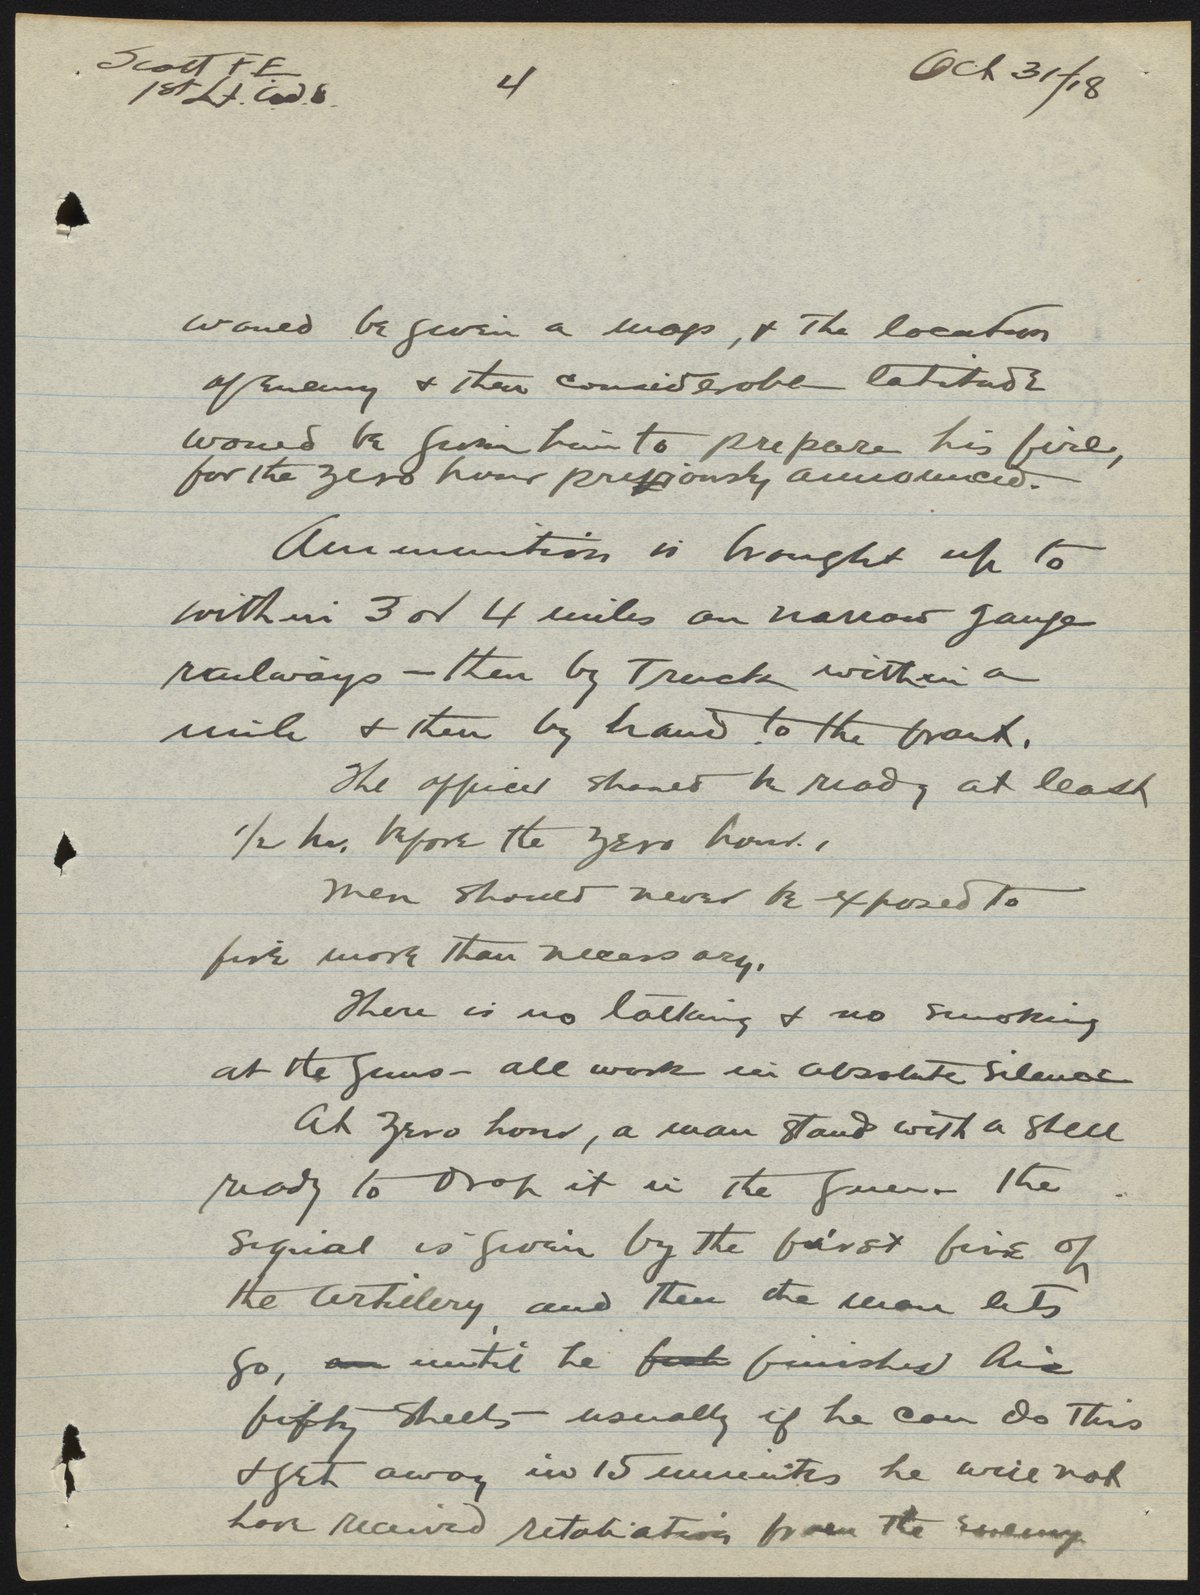 Scott F E
1st Lt.
4
Oct 31/18
would be given a map, & the location
of enemy & then considerable latitude
would be given him to prepare his fire,
for the zero hour previously announced.
Ammunition is brought up to
within 3 or 4 miles on narrow gauge
railways – then by Truck within a
mile & then by hand to the front.
The officer should be ready at least
1/2 hr. before the zero hour.
Men should never be exposed to
fire more than necessary.
There is no talking & no smoking
at the guns – all work in absolute silence
At zero hour, a man stands with a shell
ready to drop it in the gun – the
signal is given by the first fire of
the artillery, and then the man lets
go, until he finishes his
fifty shells – usually if he can do this
& get away in 15 minutes he will not
have received retaliation from the enemy